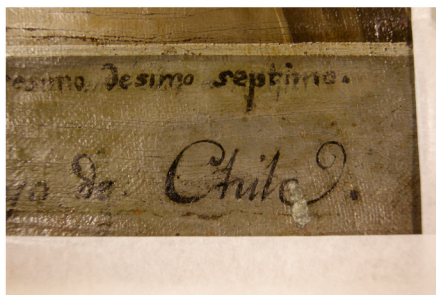 esimo desimo septimo.
go de Chile.